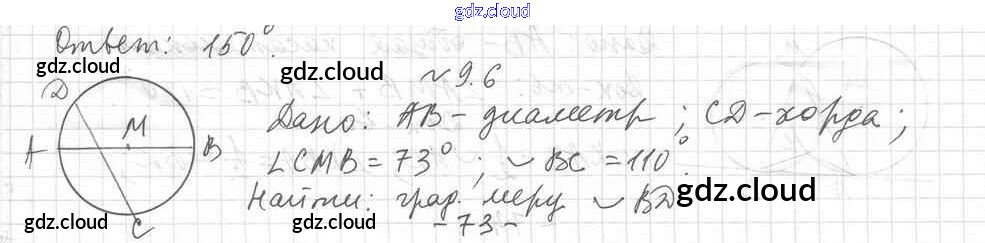 gdz.cloud
Ответ: 150°.
gdz.cloud
gdz.cloud
№9.6
D
M
A
B
C
Дано: AB - диаметр; CD - хорда;
∠CMB = 73°; ◡BC = 110°.
gdz.cloud
Найти: град. меру ◡BD.
gdz.cloud
gdz.cloud
- 73 -